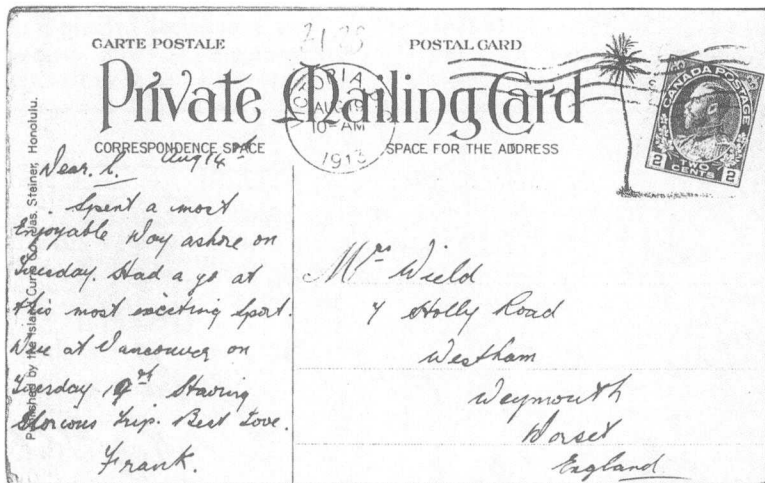 21 28
CARTE POSTALE
POSTAL CARD
Private Mailing Card
CORRESPONDENCE SPACE
SPACE FOR THE ADDRESS
VICTORIA
AUG 19
10 - AM
1913
CANADA POSTAGE
2 2
TWO
CENTS
Published by the Island Curio Co. Jas. Steiner, Honolulu.
Aug 14th
Dear
Spent a most
Enjoyable Day ashore on
Tuesday. Had a go at
this most exciting Sport.
Due at Vancouver on
Tuesday 19th Having
Glorious Trip. Best Love.
Frank.
Mrs Wield
7 Holly Road
Westham
Weymouth
Dorset
England